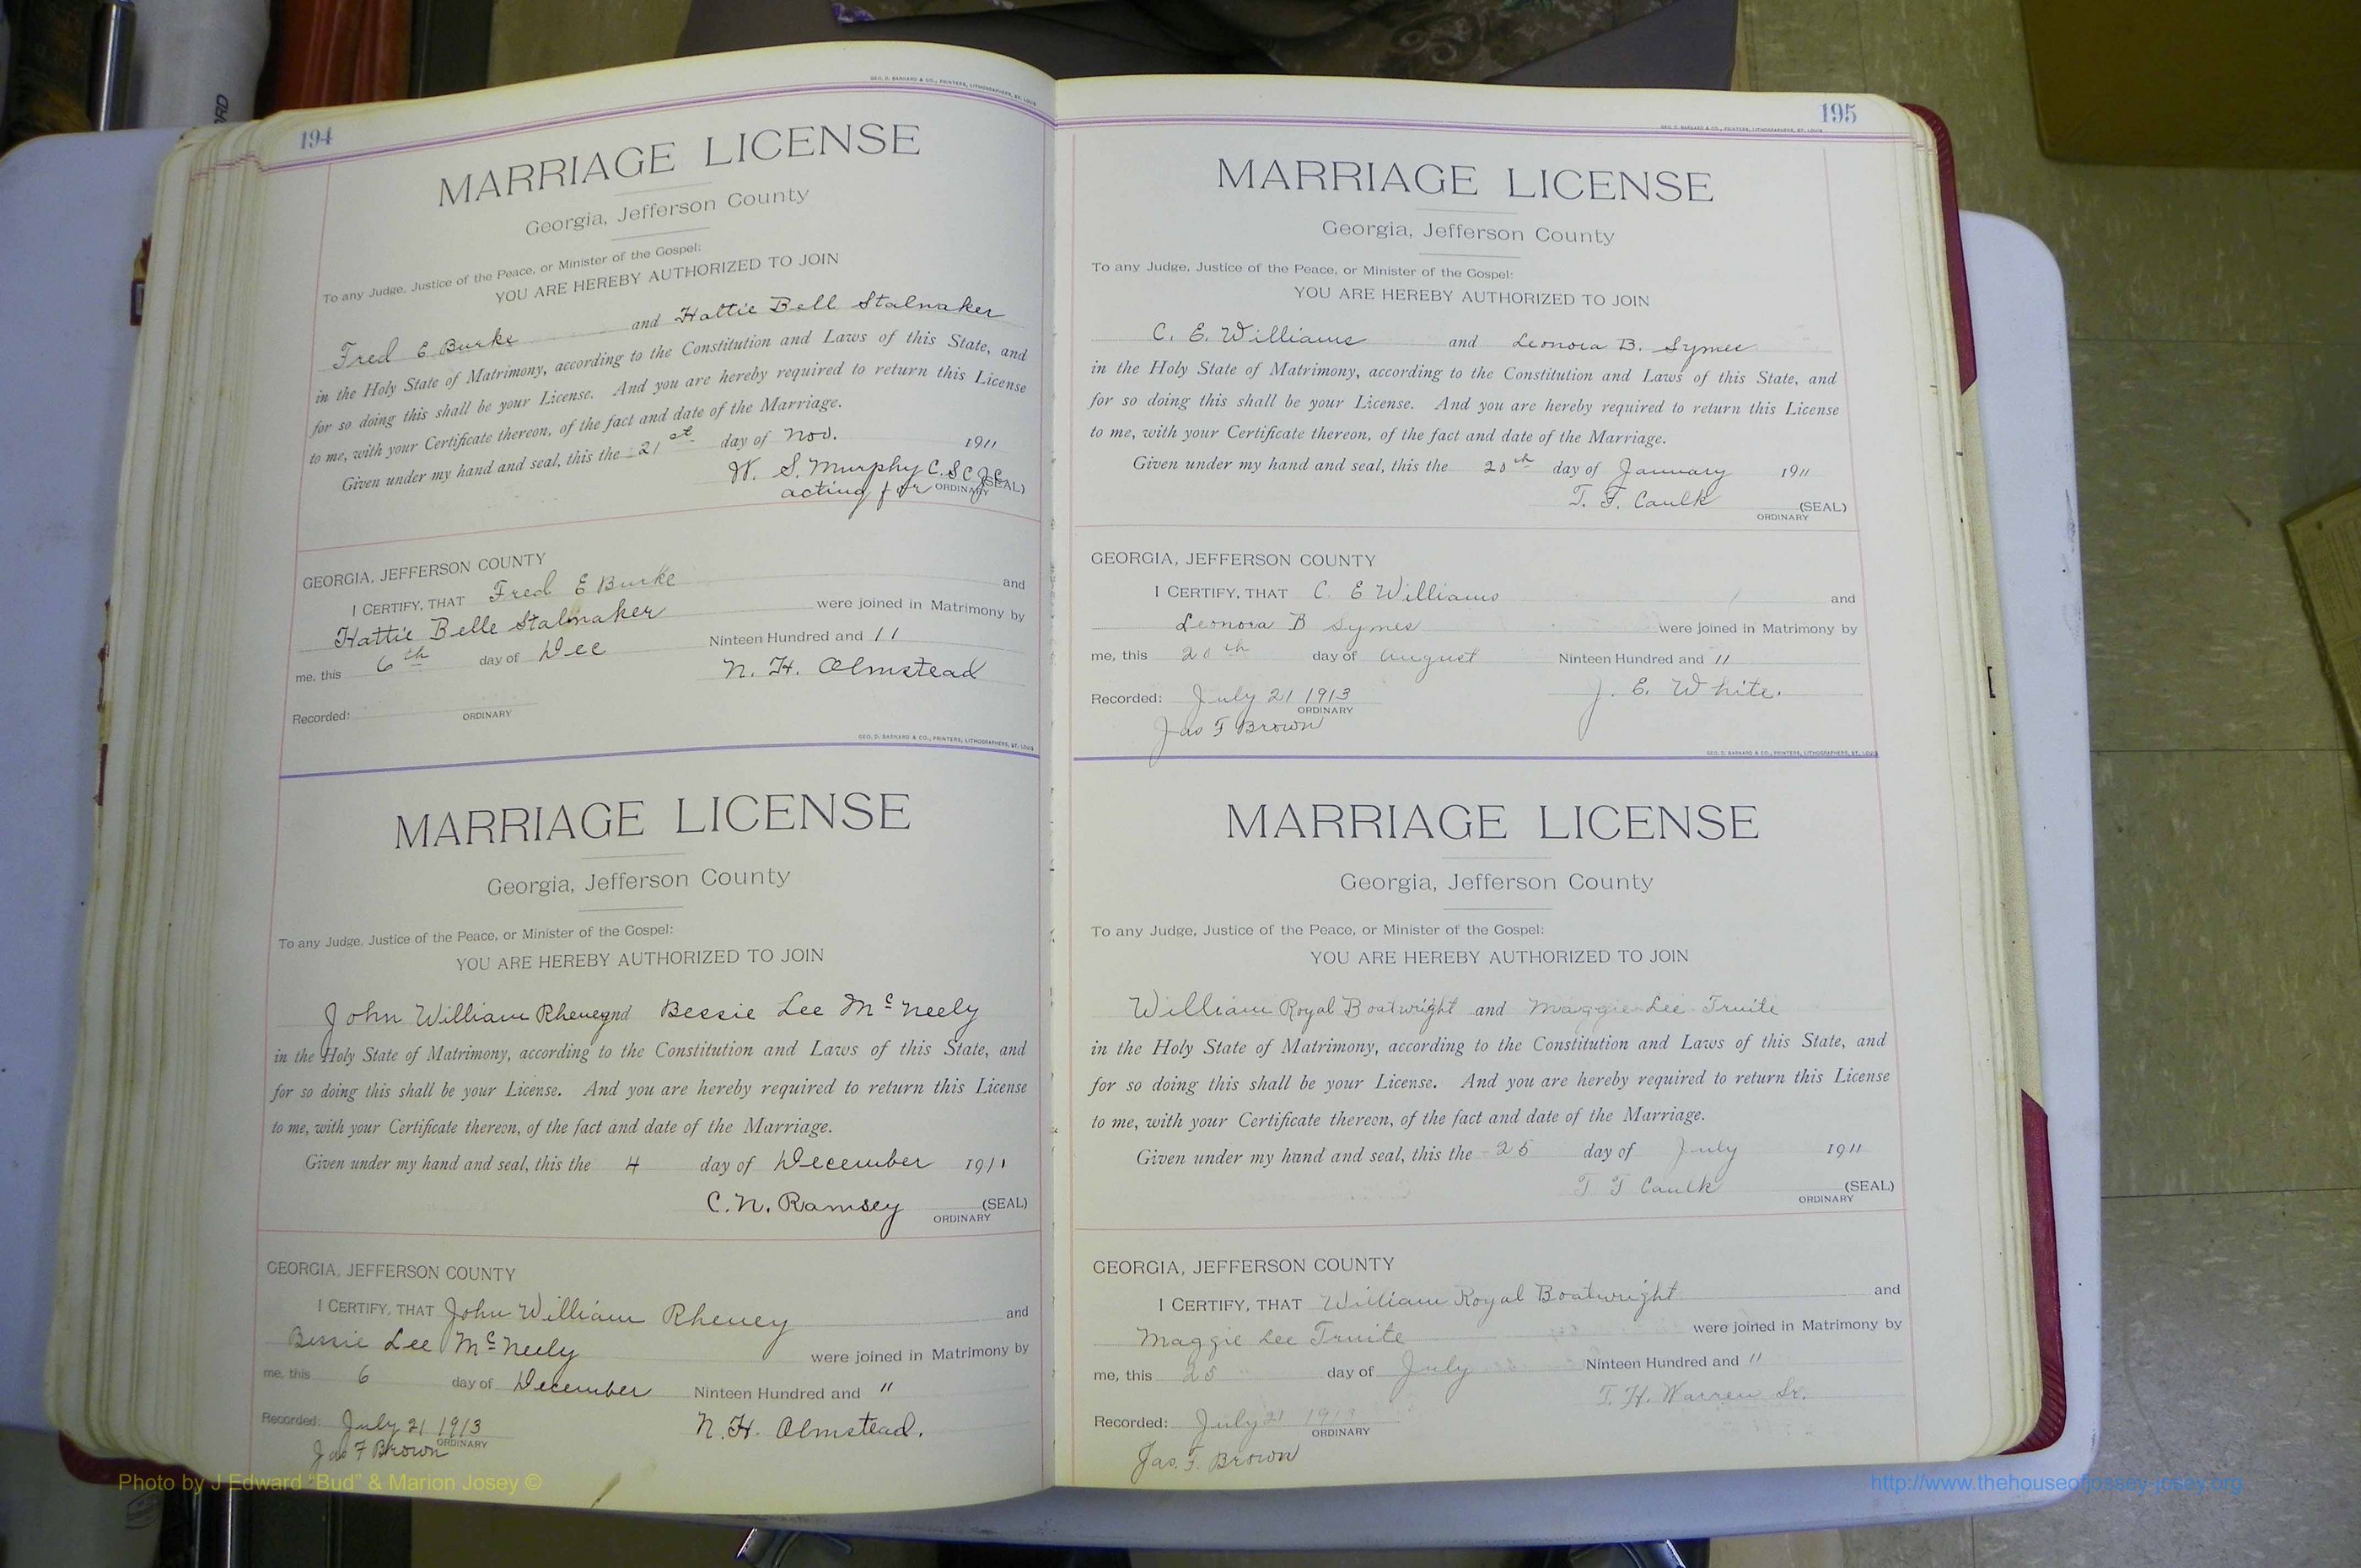 194
GEO. D. BARNARD & CO., PRINTERS, LITHOGRAPHERS, ST. LOUIS
MARRIAGE LICENSE
Georgia, Jefferson County
To any Judge, Justice of the Peace, or Minister of the Gospel:
YOU ARE HEREBY AUTHORIZED TO JOIN
Fred E Burke and Hattie Bell Stalnaker
in the Holy State of Matrimony, according to the Constitution and Laws of this State, and
for so doing this shall be your License. And you are hereby required to return this License
to me, with your Certificate thereon, of the fact and date of the Marriage.
Given under my hand and seal, this the 21st day of Nov. 1911
W. S. Murphy C.S.C.J.C. (SEAL)
acting for ORDINARY
GEORGIA, JEFFERSON COUNTY
I CERTIFY, THAT Fred E Burke and
Hattie Belle Stalnaker were joined in Matrimony by
me, this 6th day of Dec Ninteen Hundred and 11
N. H. Olmstead
Recorded: ORDINARY
GEO. D. BARNARD & CO., PRINTERS, LITHOGRAPHERS, ST. LOUIS
MARRIAGE LICENSE
Georgia, Jefferson County
To any Judge, Justice of the Peace, or Minister of the Gospel:
YOU ARE HEREBY AUTHORIZED TO JOIN
John William Rheney and Bessie Lee McNeely
in the Holy State of Matrimony, according to the Constitution and Laws of this State, and
for so doing this shall be your License. And you are hereby required to return this License
to me, with your Certificate thereon, of the fact and date of the Marriage.
Given under my hand and seal, this the 4 day of December 1911
C. N. Ramsey (SEAL)
ORDINARY
GEORGIA, JEFFERSON COUNTY
I CERTIFY, THAT John William Rheney and
Bessie Lee McNeely were joined in Matrimony by
me, this 6 day of December Ninteen Hundred and 11
Recorded: July 21 1913 N. H. Olmstead.
ORDINARY
Jas F Brown
195
GEO. D. BARNARD & CO., PRINTERS, LITHOGRAPHERS, ST. LOUIS
MARRIAGE LICENSE
Georgia, Jefferson County
To any Judge, Justice of the Peace, or Minister of the Gospel:
YOU ARE HEREBY AUTHORIZED TO JOIN
C. E. Williams and Leonora B. Symes
in the Holy State of Matrimony, according to the Constitution and Laws of this State, and
for so doing this shall be your License. And you are hereby required to return this License
to me, with your Certificate thereon, of the fact and date of the Marriage.
Given under my hand and seal, this the 20th day of January 1911
T. F. Caulk (SEAL)
ORDINARY
GEORGIA, JEFFERSON COUNTY
I CERTIFY, THAT C. E Williams and
Leonora B Symes were joined in Matrimony by
me, this 20th day of August Ninteen Hundred and 11
Recorded: July 21 1913 J. E. White.
ORDINARY
Jas F Brown
GEO. D. BARNARD & CO., PRINTERS, LITHOGRAPHERS, ST. LOUIS
MARRIAGE LICENSE
Georgia, Jefferson County
To any Judge, Justice of the Peace, or Minister of the Gospel:
YOU ARE HEREBY AUTHORIZED TO JOIN
William Royal Boatwright and Maggie Lee Truite
in the Holy State of Matrimony, according to the Constitution and Laws of this State, and
for so doing this shall be your License. And you are hereby required to return this License
to me, with your Certificate thereon, of the fact and date of the Marriage.
Given under my hand and seal, this the 25 day of July 1911
T F Caulk (SEAL)
ORDINARY
GEORGIA, JEFFERSON COUNTY
I CERTIFY, THAT William Royal Boatwright and
Maggie Lee Truite were joined in Matrimony by
me, this 25 day of July Ninteen Hundred and 11
T. H. Warren Sr.
Recorded: July 21 1913
ORDINARY
Jas. F. Brown
Photo by J Edward "Bud" & Marion Josey ©
http://www.thehouseofjossey-josey.org